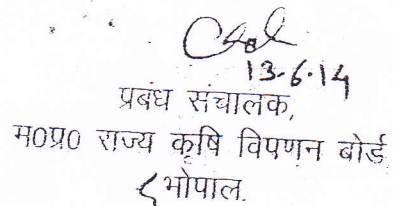 13.6.14
प्रबंध संचालक,
म0प्र0 राज्य कृषि विपणन बोर्ड
भोपाल.